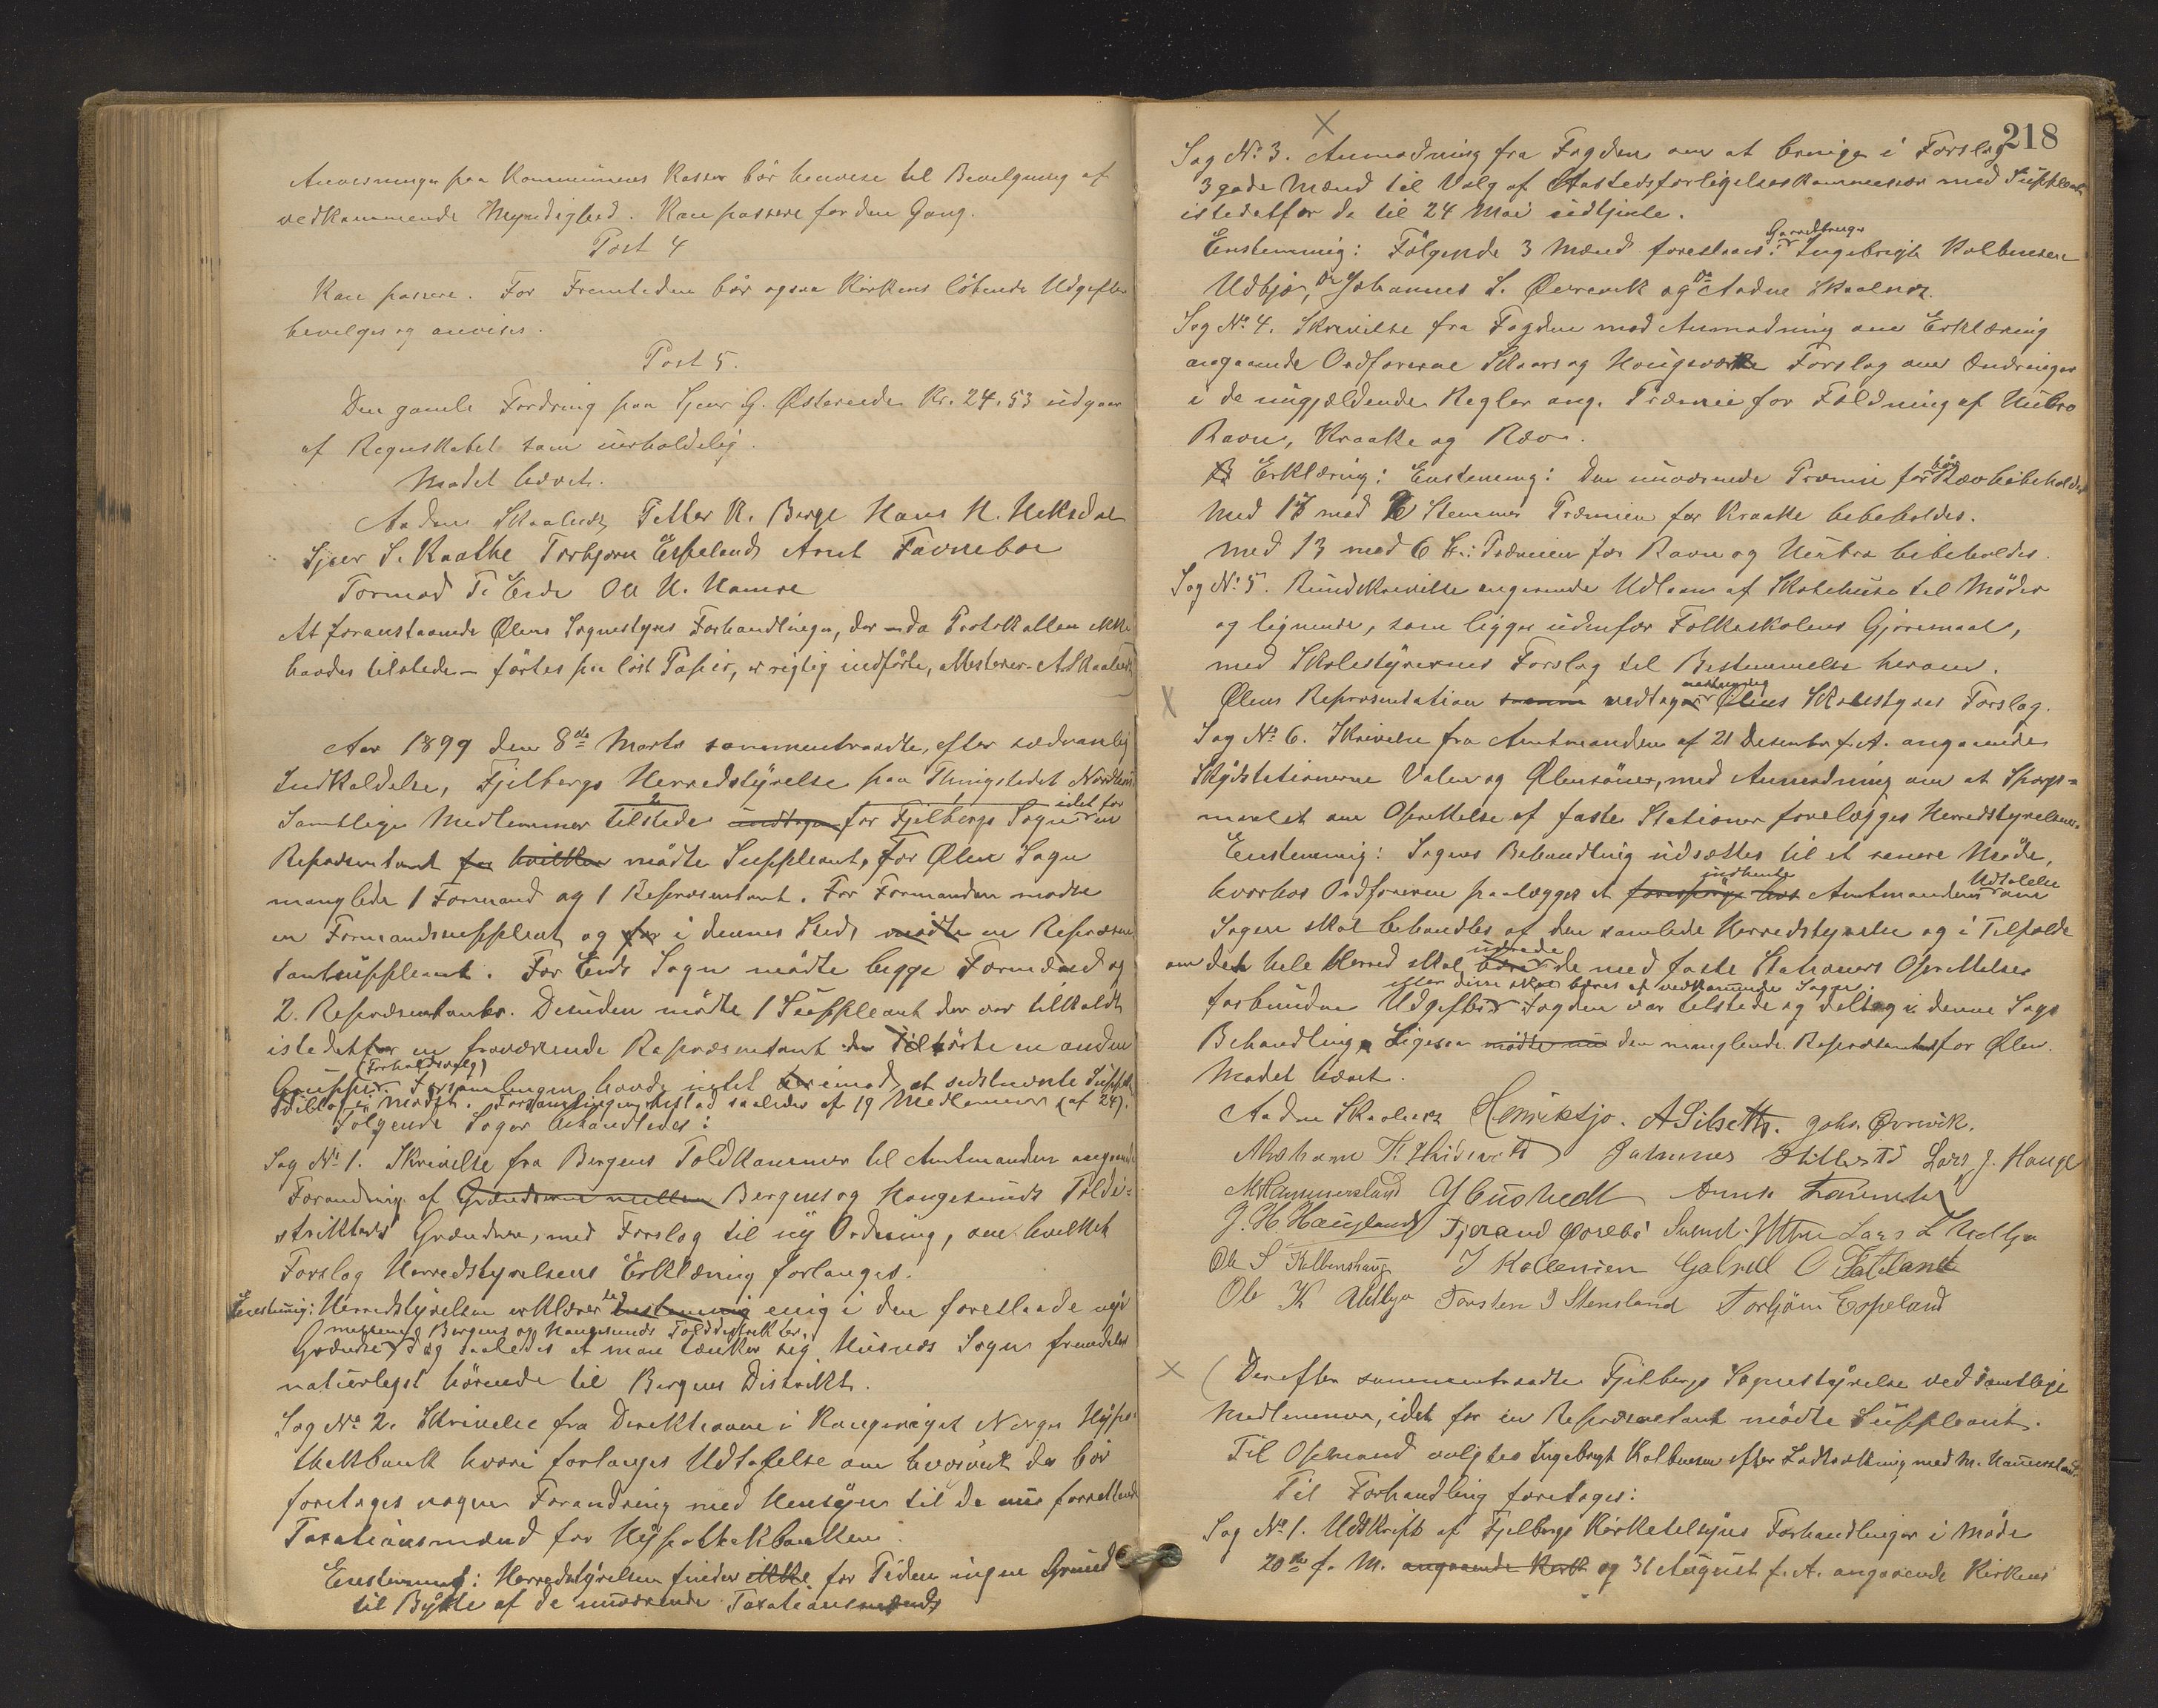 Anvisninger paa Kommunens Kasser bör henvise til Bevilgning af
vedkommende Myndighed. Kan passere for den Gang.
Post 4
Kan passere. For Fremtiden bör ogsaa Kirkens löbende Udgifter
bevilges og anvises.
Post 5.
Den gamle Fordring paa Sjur G. Østereide Kr. 24.53 udgaar
af Regnskabet som uerholdelig.
Mödet hævet.
Aadne Skaalnes Petter K. Berge Hans H. Heksdal
Sjver S. Raathe Torbjørn Espeland Arnt Favneboe
Tormod T. Eide Ole H. Hamre
At foranstaaende Ølens Sognestyres Forhandlinger, der – da Protokollen ikke
havdes tilstede – förtes paa löst Papir, er rigtig indförte, attesterer A. Skaalnes
Aar 1899 den 8de Marts sammentraadte, efter sædvanlig
Indkaldelse, Fjelbergs Herredstyrelse paa Thingstedet Nordhuus
Samtlige Medlemmer tilstede undtagen for Fjelbergs Sogn idet for en
Repræsentant for hvilken mödte Suppleant, For Ølen Sogn
manglede 1 Formand og 1 Repræsentant. For Formanden mødte
en Formandssuppleant og for i dennes Sted mödte en Repræsen
tantsuppleant. For Eids Sogn mödte begge Formænd og
2. Repræsentanter. Desuden mödte 1 Suppleant der var tilkaldt
istedetfor en fraværende Repræsentant der tilhörte en anden
Gruppe (Forholdsvalg). Forsamlingen havde intet herimod at sidstnævnte Suppl.
deltog i mödet. Forsamlingen bestod saaledes af 19 Medlemmer (af 24).
Fölgende Sager behandledes:
Sag No 1. Skrivelse fra Bergens Toldkammer til Amtmanden angaaende
Forandring af Grændserne mellem Bergens og Haugesunds Toldi-
strikters Grændser, med Forslag til ny Ordning, om hvilket
Forslag Herredstyrelsens Erklæring forlanges.
Enstemig: Herredstyrelsen erklærer sig Enstemmig enig i den foreslaaede nye
Grændse mellem Bergens og Haugesunds Tolddistrikter, dog saaledes at man tænker sig Husnæs Sogn fremdeles
naturligst hörende til Bergens Distrikt.
Sag No 2. Skrivelse fra Direktionen i Kongeriget Norges Hypo-
thekbank hvori forlanges Udtalelse om hvorvidt der bör
foretages nogen Forandring med Hensyn til de nu forrettende
Taxationsmænd for Hypothekbanken.
Enstemmig: Herredstyrelsen finder ikke for Tiden ingen Grund
til Bytte af de nuværende Taxationsmænd
218
Sag No 3. Anmodning fra Fogden om at bringe i Forslag
3 gode Mænd til Valg af Aastedsforligelseskommission med Suppleant
istedetfor de til 24 Mai udtjente.
Enstemmig: Fölgende 3 Mænd foreslaaes: Gaardbruger Ingebrigt Kolbensen
Udbjo, Do Johannes L. Øvrevik og Do Aadne Skaalnes.
Sag No 4. Skrivelse fra Fogden med Anmodning om Erklæring
angaaende Ordförerne Skaars og Hougeværks Forslag om Ændringer
i de nugjældende Regler ang. Præmie for Fældning af Hubro
Ravn, Kraake og Ræv.
Erklæring: Enstemmig: Den nuværende Præmie for Ræv bör bibeholdes
Med 13 mod 6 Stemmer Præmien for Kraake bibeholdes.
med 13 mod 6 St: Præmien for Ravn og Hubro bibeholdes.
Sag No 5. Rundskrivelse angaaende Udlaan af Skolehuse til Möder
og lignende, som ligger udenfor Folkeskolens Gjöremaal,
med Skolestyrernes Forslag til Bestemmelse herom.
Ølens Repræsentation vedtager enstemmig Ølens Skolestyres Forslag.
Sag No 6. Skrivelse fra Amtmanden af 21 Desember f. A. angaaende
Skydsstationerne Valen og Ølensöen, med Anmodning om at Spörgs-
maalet om Oprettelse af faste Stationer forelægges Herredstyrelsen.
Enstemmig: Sagens Behandling udsættes til et senere Möde,
hvorhos Ordföreren paalægges at forespörge hos indhente Amtmandens Udtalelse om
Sagen skal behandles af den samlede Herredstyrelse og i Tilfælde
om det hele Herred skal udrede de med faste Stationers Oprettelse
forbundne Udgifter eller disse skal bæres af vedkommende Sogne. Fogden var tilstede og deltog i denne Sags
Behandling, Ligesaa mödte nu den manglende Repræsentant for Ølen.
Mödet hævet.
Aadne Skaalnes Henriksjo. A Silseth. Johs. Øvrevik.
Abraham T. Johannes Lars J. Hauge
M Hammersland Arnt Favnebo
J. H Haugland Tjerand Øvrebö Lars L Udbjo
Ole S Kolbenshaug I Kolbensen Gabriel O Tateland
Ole K Udbjo Torsten I Stensland Torbjörn Espeland
(Derefter sammentraadte Fjelbergs Sognestyrelse ved samtlige
Medlemmer, idet for en Repræsentant mödte Suppleant.
Til Opmand valgtes Ingebrigt Kolbensen efter Lodtrækning med M. Hammersland.
Til Forhandling foretages:
Sag No 1. Udskrift af Fjelbergs Kirketilsyns Forhandlinger i Möde
20de f. M. angaaende Kirk og 31 August f. A. angaaende Kirkens